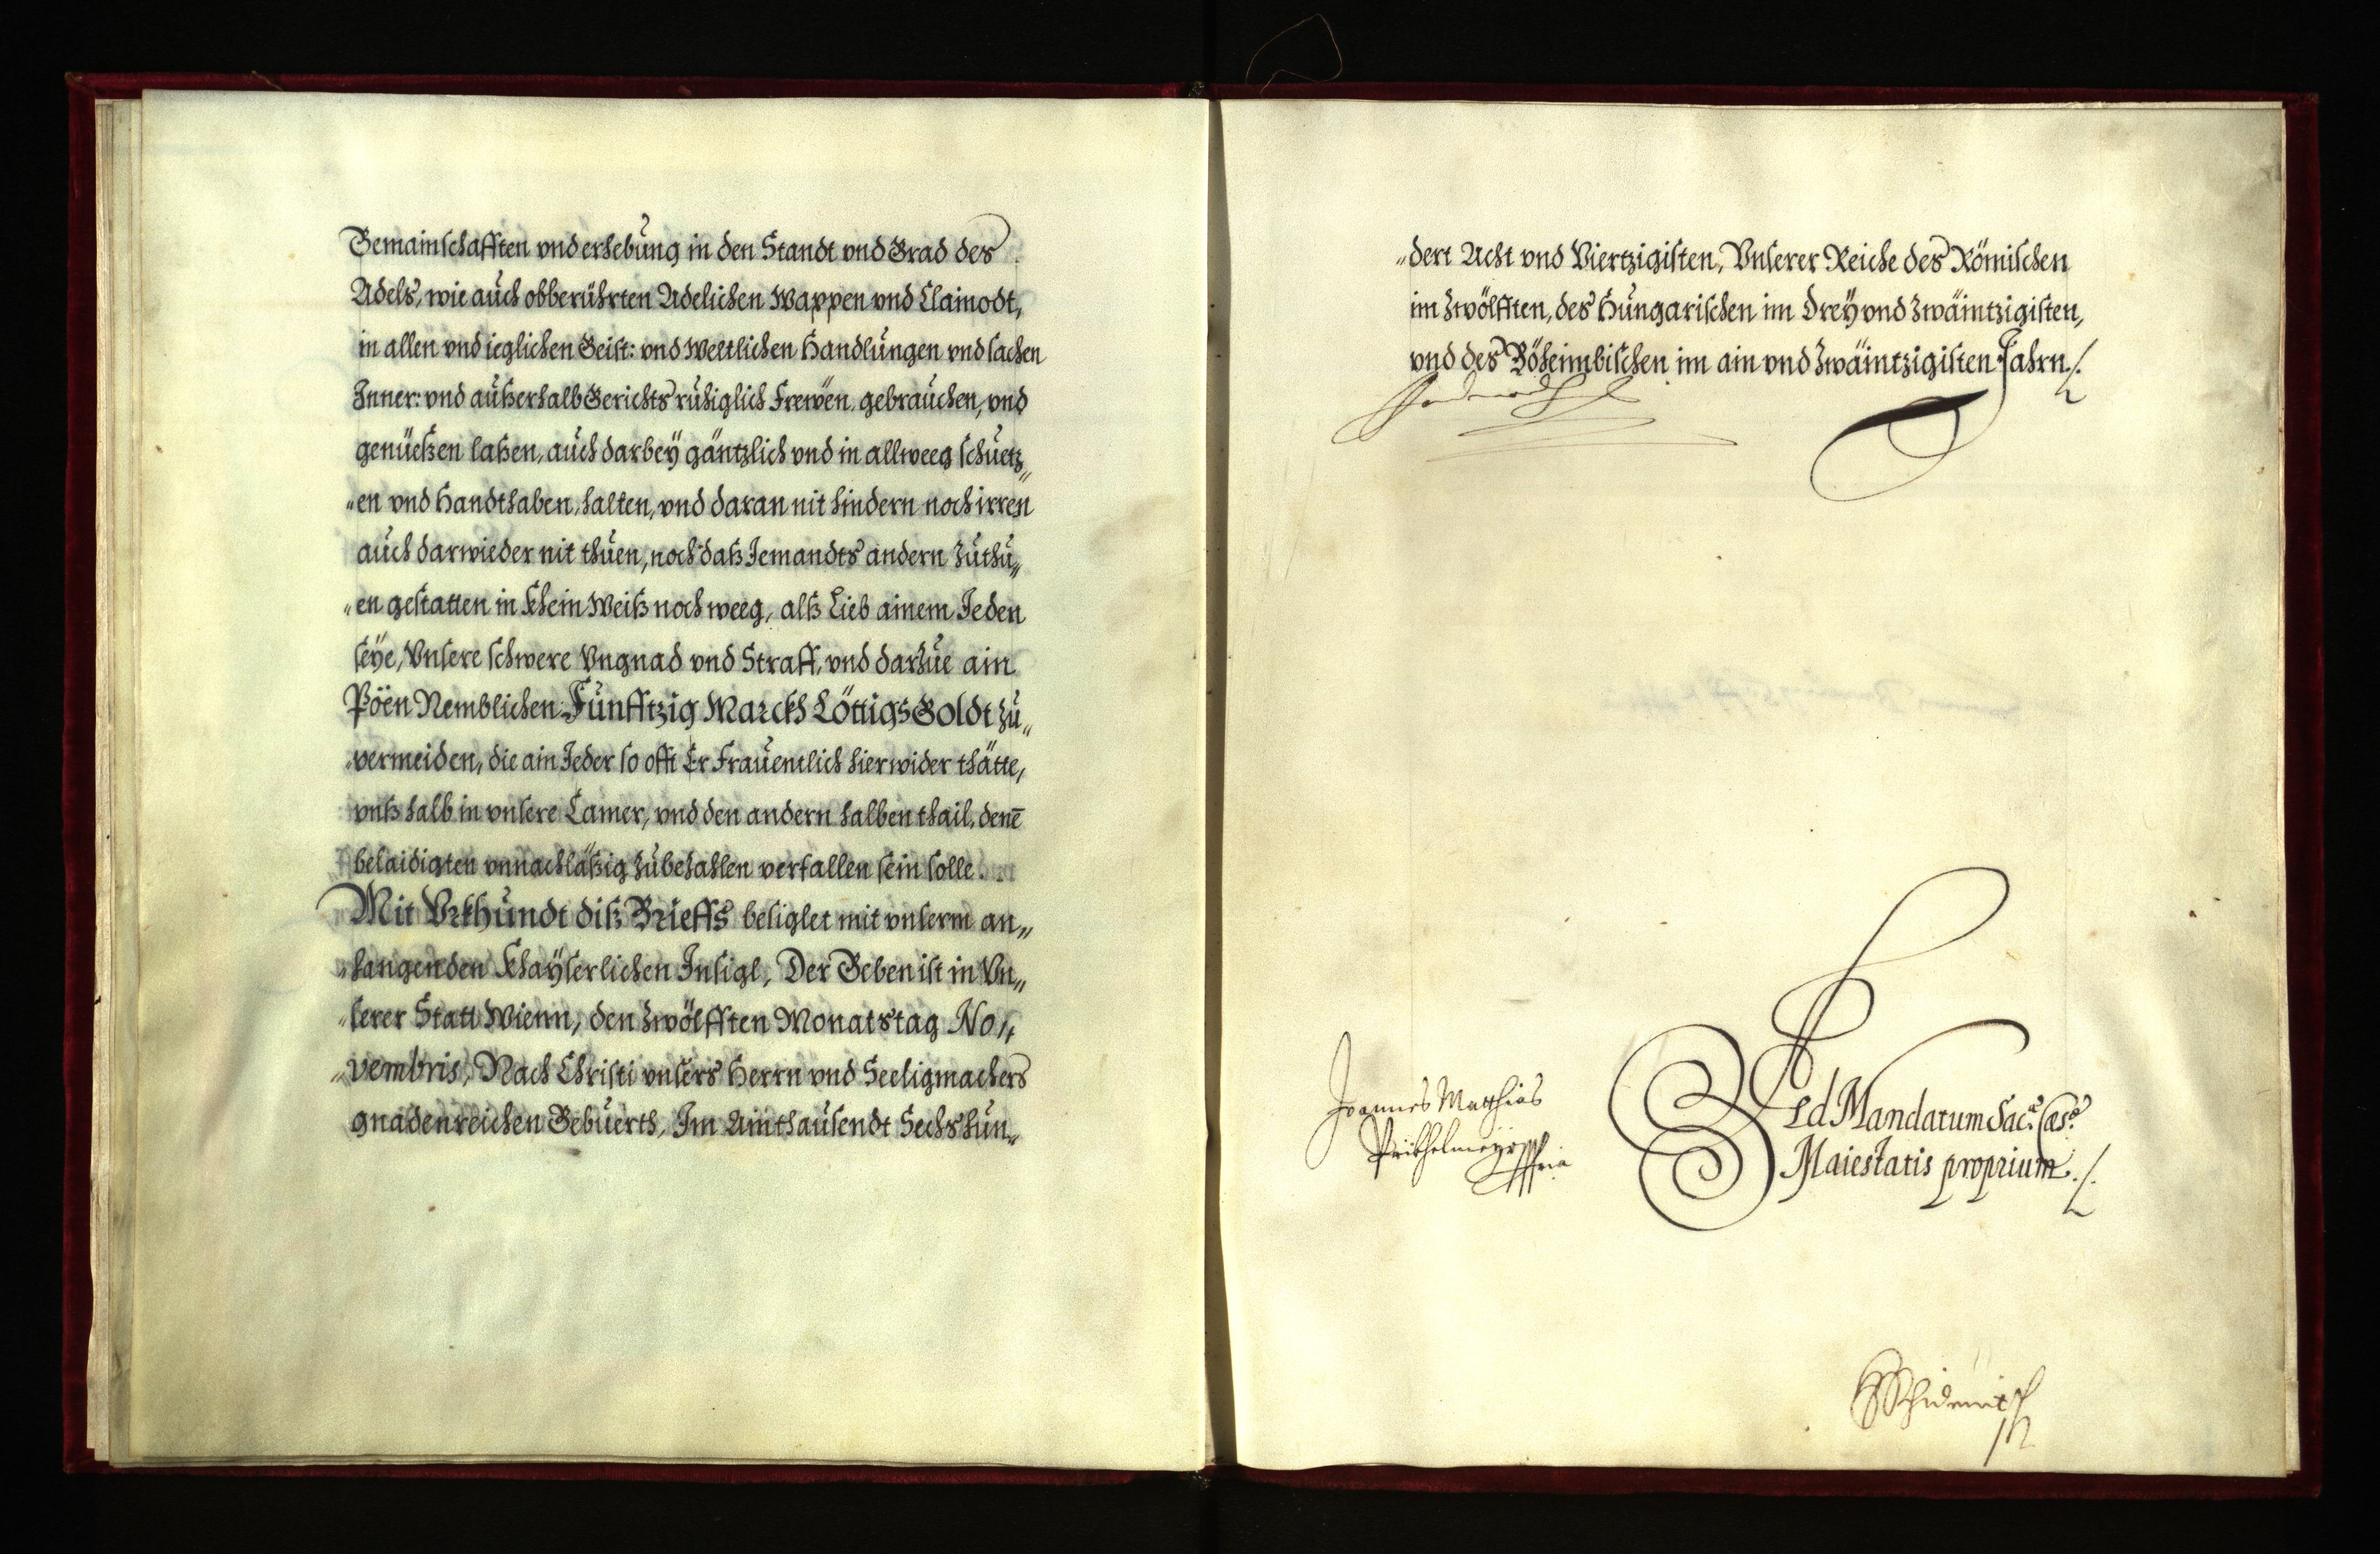 Gemainschafften vnd erhebung in den Standt vnd Grad des
Adels, wie auch obberührten Adelichen Wappen vnd Clainodt,
in allen vnd ieglichen Geist: vnd Weltlichen Handlungen vnd sachen
Inner: vnd außerhalb Gerichts ruhiglich Frewen, gebrauchen, vnd
genüeßen laßen, auch darbeÿ gäntzlich vnd in allweeg schuetz„
„en vnd Handthaben, halten, vnd daran nit hindern noch irren
auch darwieder nit thuen, noch daß Iemandts andern Zuthu„
„en gestatten in Khein Weiß noch weeg, alß Lieb ainem Jeden
seÿe, Vnsere schwere Vngnad vnd Straff, vnd darzue ain
Pöen Nemblichen Fünfftzig Marckh Löttigs Goldt zu„
„vermeiden, die ain Jeder so offt Er Frauentlich hierwider thätte,
vnß halb in vnsere Camer, vnd den andern halben thail, denē
belaidigten vnnachläßig Zubezahlen verfallen sein solle.
Mit Vrkhundt diß Brieffs besiglet mit vnserm an„
„hangenden Khaÿserlichen Insigl, Der Geben ist in Vn„
„serer Statt Wienn, den Zwölfften Monatstag No„
„vembris, Nach Christi vnsers Herrn vnd Seeligmachers
gnadenreichen Gebuerth, Im Ainthausendt Sechshun„
„dert Acht vnd Viertzigisten, Vnserer Reiche des Römischen
im Zwölfften, des Hungarischen im Dreÿ vnd Zwäintzigisten,
vnd des Böheimbischen im ain vnd Zwäintzigisten Jahrn./.
Joannes Matthias
Prükhelmeyr
Ad Mandatum Sac.ᵃᵉ Cæs.ᵃᵉ
Maiestatis proprium./.